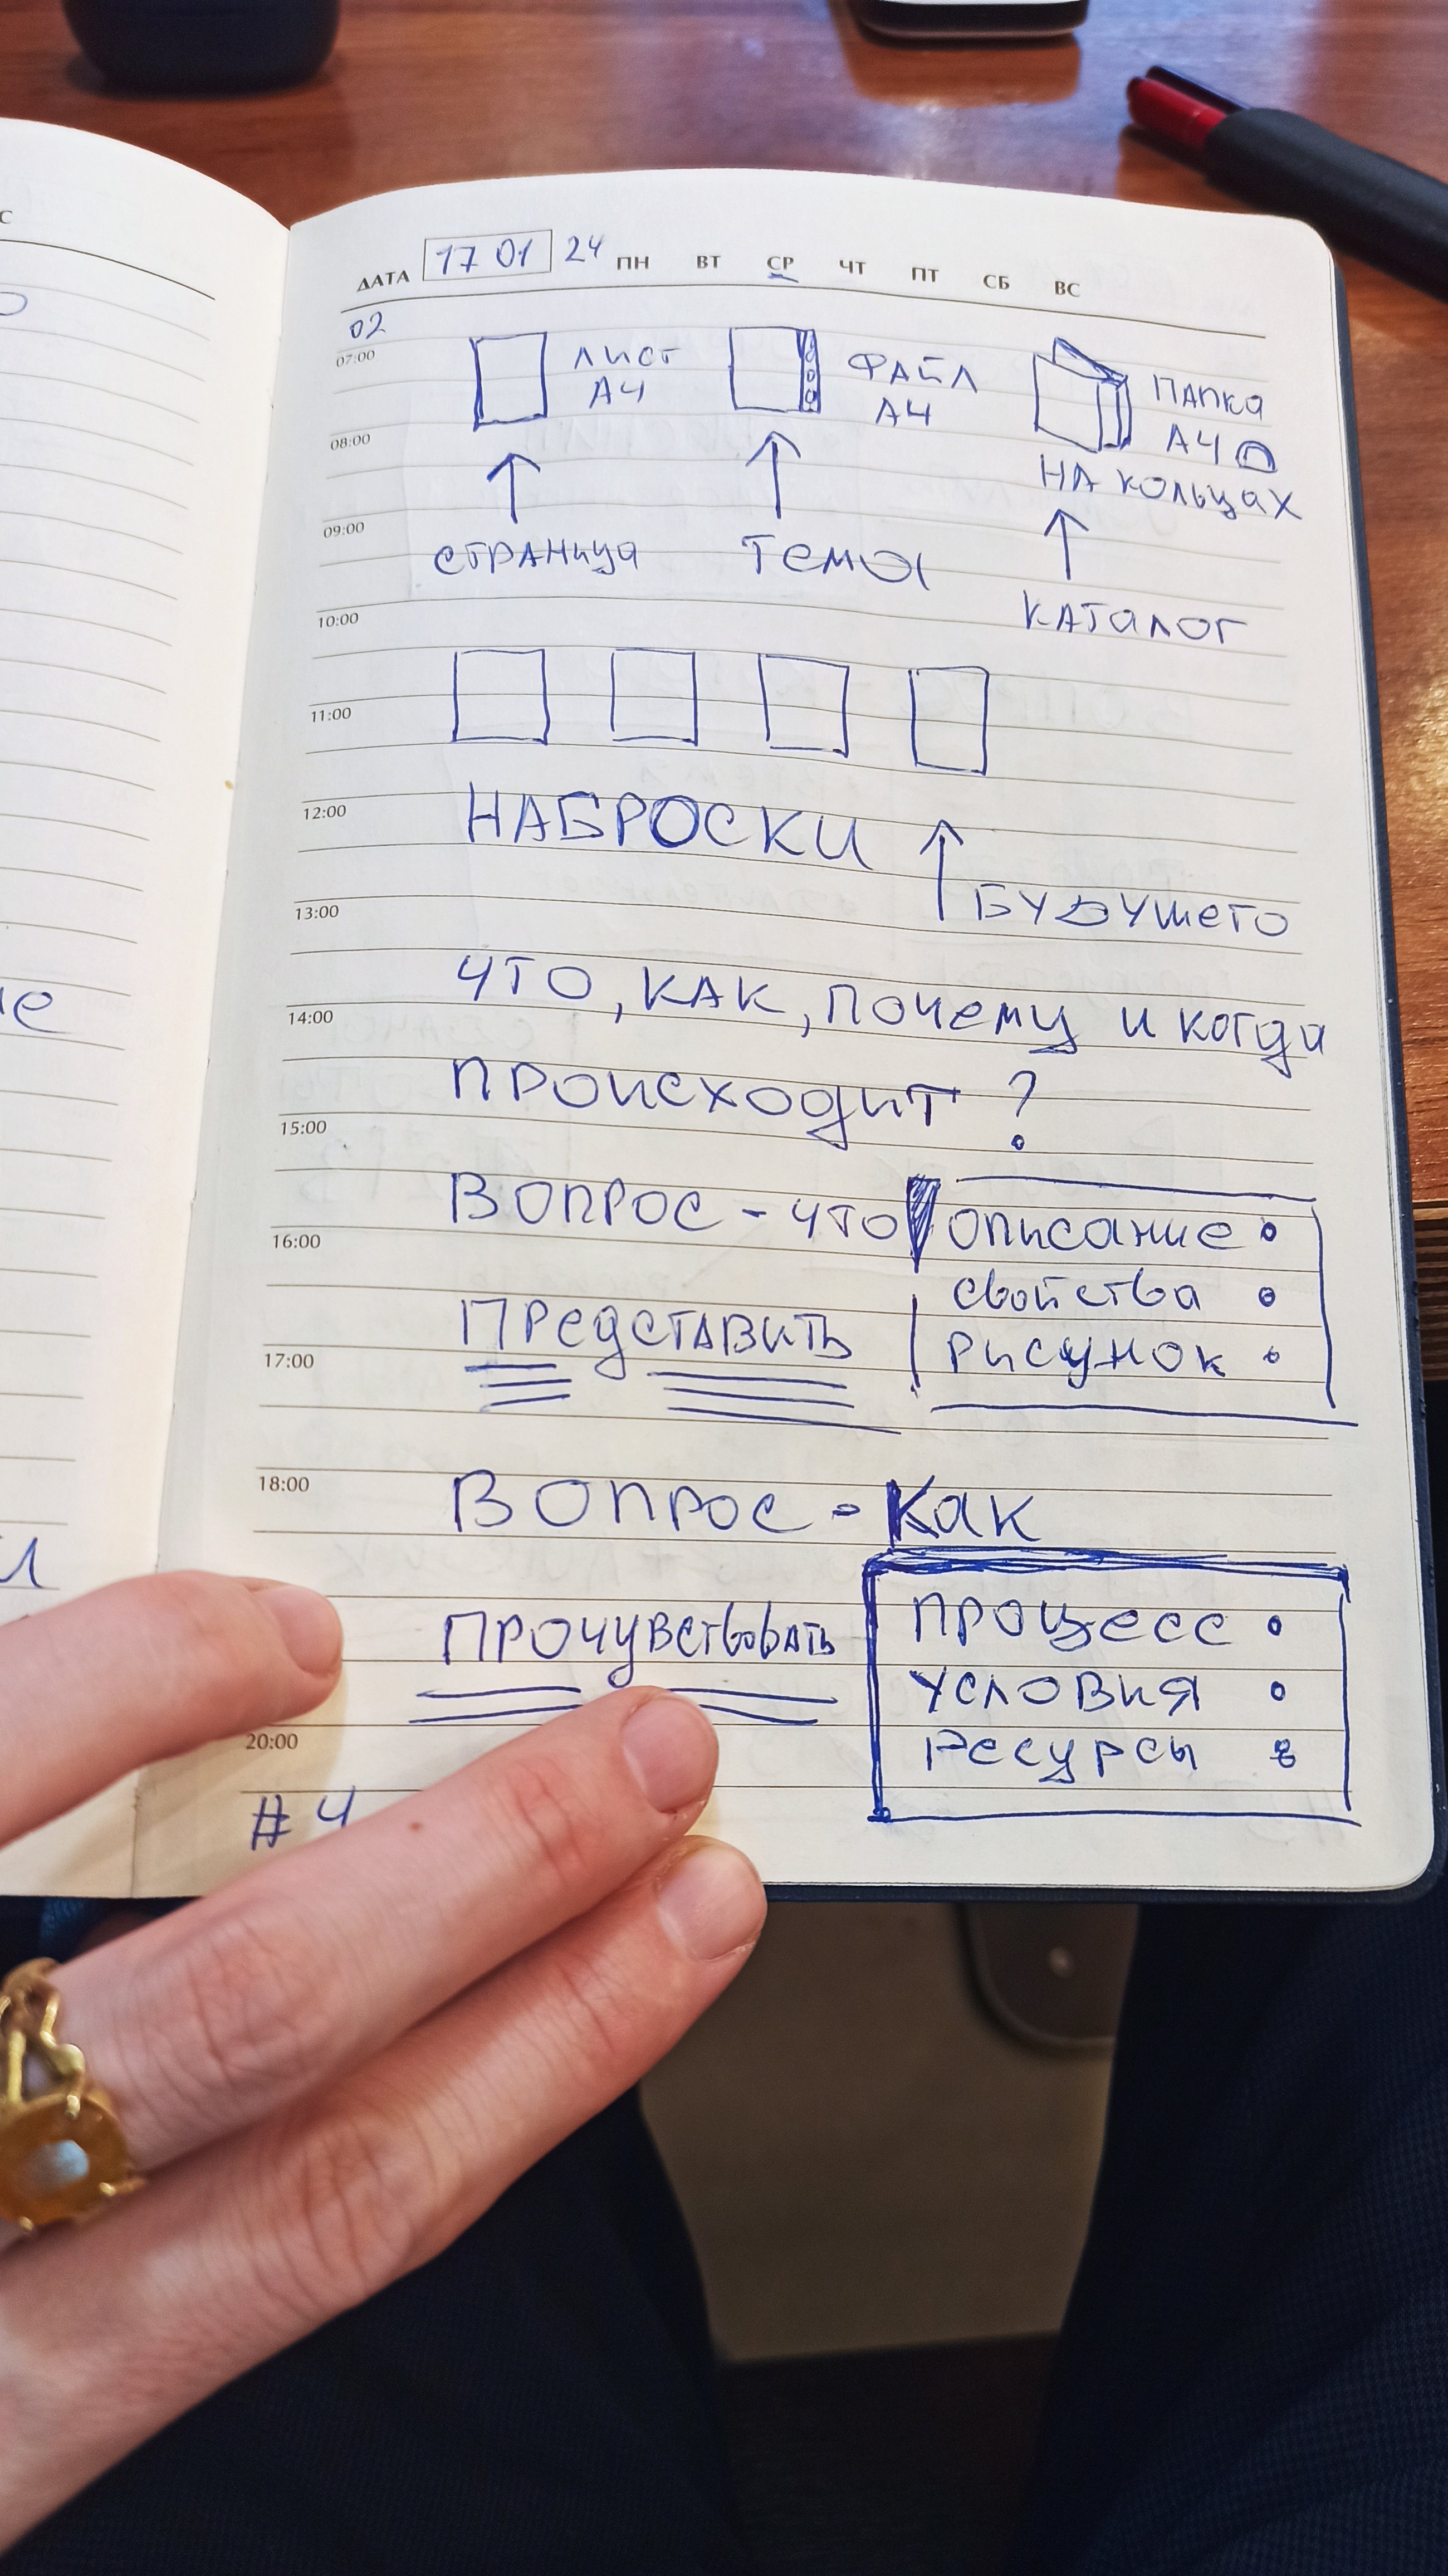 С
ДАТА 17 01 24 ПН ВТ СР ЧТ ПТ СБ ВС
02
07:00
ЛИСТ А4
ФАЙЛ А4
ПАПКА А4
НА КОЛЬЦАХ
08:00
09:00
СТРАНИЦА
ТЕМЫ
КАТАЛОГ
10:00
11:00
12:00
НАБРОСКИ
13:00
БУДУШЕГО
ЧТО, КАК, ПОЧЕМУ И КОГДА
14:00
ПРОИСХОДИТ ?
15:00
ВОПРОС - ЧТО
ОПИСАНИЕ
16:00
СВОЙСТВА
ПРЕДСТАВИТЬ
РИСУНОК
17:00
18:00
ВОПРОС - КАК
ПРОЦЕСС
ПРОЧУВСТВОВАТЬ
УСЛОВИЯ
20:00
РЕСУРСЫ
# 4